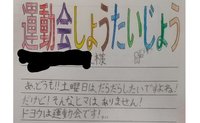 運動会しょうたいじょう
様
あ、どうも!!土曜日は、だらだらしたいですよね!
だけど!そんなヒマは、ありません!
ドヨウは運動会です!